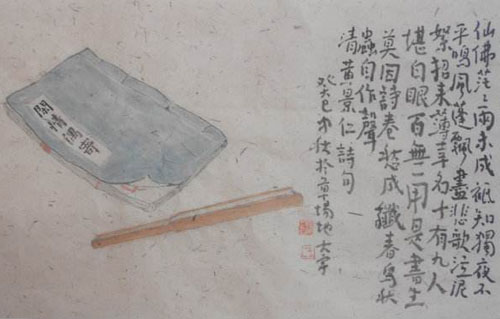 仙佛茫々兩未成祇知獨夜不
平鳴風蓬飄盡悲歌氣泥
絮招来薄幸名十有九人
堪白眼百無一用是書生
莫因詩卷愁成讖春鳥秋
蟲自作聲
清黄景仁詩句
癸巳秋於地大
閑情偶寄